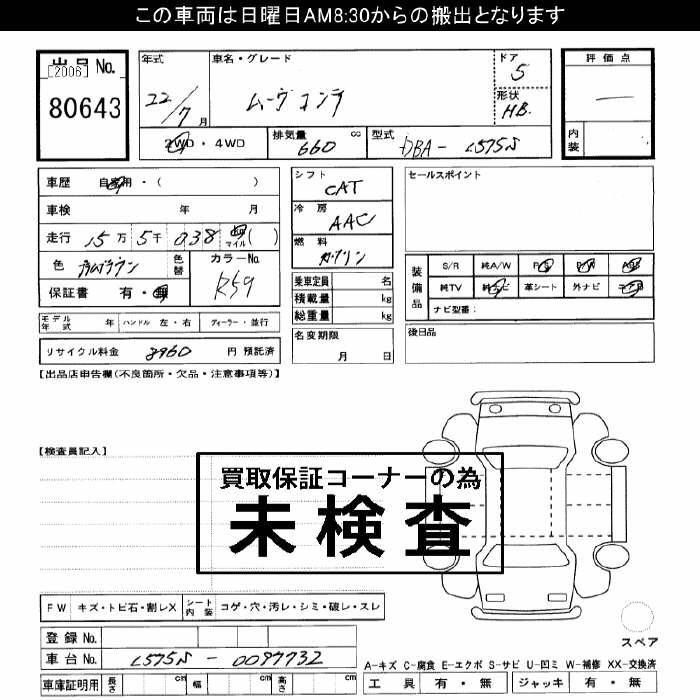 この車両は日曜日AM8:30からの搬出となります
出品 No.
[2006]
80643
年式
22/7月
車名・グレード
ムーヴ コンテ
ドア
5
形状
HB
評価点
―
内装
2WD・4WD
排気量 660 cc
型式 DBA- L575S
車歴 自家用・( )
車検 年 月
走行 15万 5千 038 マイル( )
色
色替
カラーNo.
R59
保証書 有・無
モデル年式 年 ハンドル 左・右 ディーラー・並行
リサイクル料金 8960 円 預託済
シフト
CAT
冷房
AAC
燃料
ガソリン
乗車定員 名
積載量 kg
総重量 kg
名変期限
月 日
セールスポイント
装備品
S/R 純A/W P/S P/W A/B
純TV 純ナビ 革シート 外ナビ
ナビ型番:
後日品
【出品店申告欄(不良箇所・欠品・注意事項等)】
【検査員記入】
買取保証コーナーの為
未検査
FW キズ・トビ石・割レX シート内装 コゲ・穴・汚レ・シミ・破レ・スレ
登録No.
車台No. L575S - 0097732
車庫証明用 長さ cm 幅 cm 高さ cm
スペア
A-キズ C-腐食 E-エクボ S-サビ U-凹ミ W-補修 XX-交換済
工具 有・無 ジャッキ 有・無